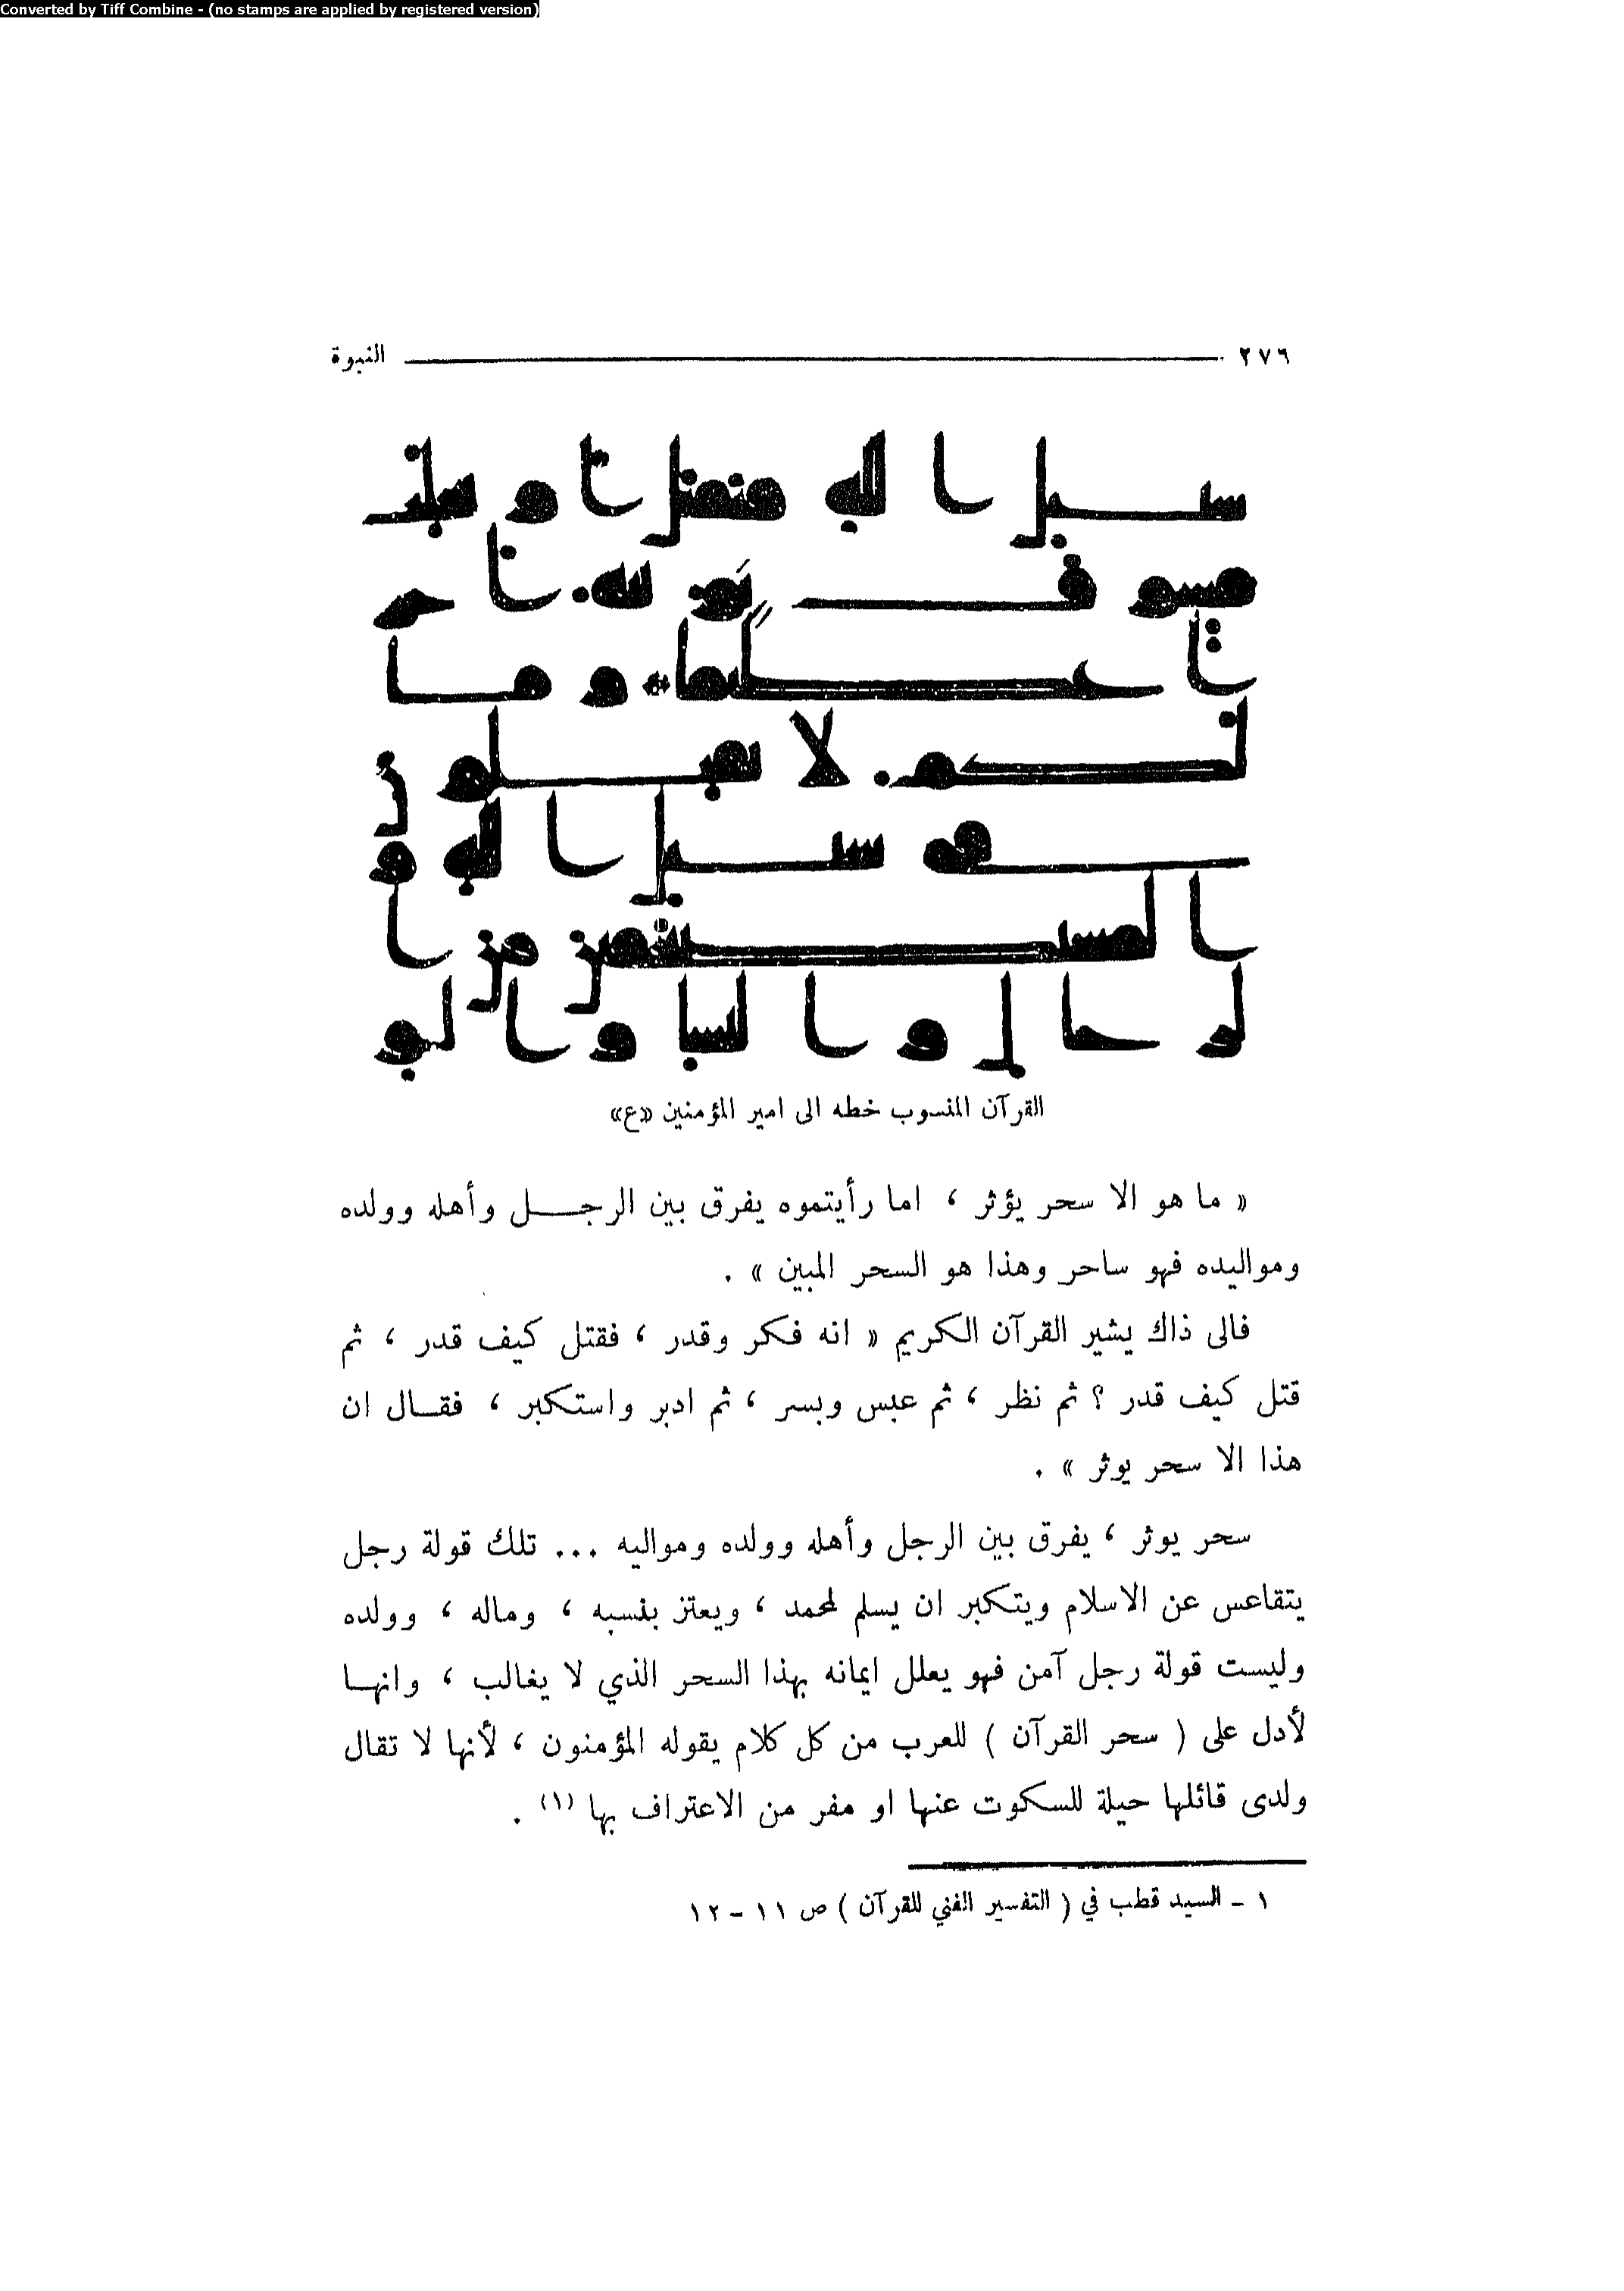 Converted by Tiff Combine - (no stamps are applied by registered version)
٢٧٦ النبوة
سبيل الله فيقتل او يغلب
فسوف نؤتيه اجر
ا عظيما و ما
لكم لا تقتلون
في سبيل الله و
المستضعفين من ا
لرجال والنسا والو
القرآن المنسوب خطه الى امير المؤمنين «ع»
« ما هو الا سحر يؤثر ، اما رأيتموه يفرق بين الرجـــل وأهله وولده
ومواليده فهو ساحر وهذا هو السحر المبين » .
فالى ذاك يشير القرآن الكريم « انه فكر وقدر ، فقتل كيف قدر ، ثم
قتل كيف قدر ؟ ثم نظر ، ثم عبس وبسر ، ثم ادبر واستكبر ، فقــال ان
هذا الا سحر يوثر » .
سحر يوثر ، يفرق بين الرجل وأهله وولده ومواليه ... تلك قولة رجل
يتقاعس عن الاسلام ويتكبر ان يسلم لمحمد ، ويعتز بنسبه ، وماله ، وولده
وليست قولة رجل آمن فهو يعلل ايمانه بهذا السحر الذي لا يغالب ، وانهــا
لأدل على ( سحر القرآن ) للعرب من كل كلام يقوله المؤمنون ، لأنها لا تقال
ولدى قائلها حيلة للسكوت عنها او مفر من الاعتراف بها (١) .
١ – السيد قطب في ( التفسير الفني للقرآن ) ص ١١ – ١٢